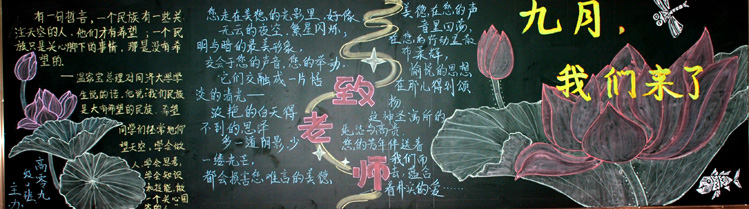 有一句哲言，一个民族有一些关
注天空的人，他们才有希望；一个民
族只是关心脚下的事情，那是没有希
望的.
——温家宝总理对同济大学学
生说的话，他说：我们民族
是大有希望的民族，希望
同学们经常地仰
望天空，学会做
人，学会思考，
学会知识
和技能，做
一个关心国
高零九
主办
您走在美德的光影里，好像
无云的夜空，繁星闪烁，
明与暗的最美形象，
交会于您的声音，您的举动，
它们交融成一片恬
淡的清光——
浓艳的白天得
不到的恩泽
多一道阴影，少
一缕光芒，
都会损害您难言的美德.
致老师
美德在您的声
音里回
在您的行动里散
布柔辉，
愉悦的思想
在那儿得到颂
扬
这神圣 所的
纯洁与高贵
我们而
去，蕴含
的爱……
九月，
我们来了